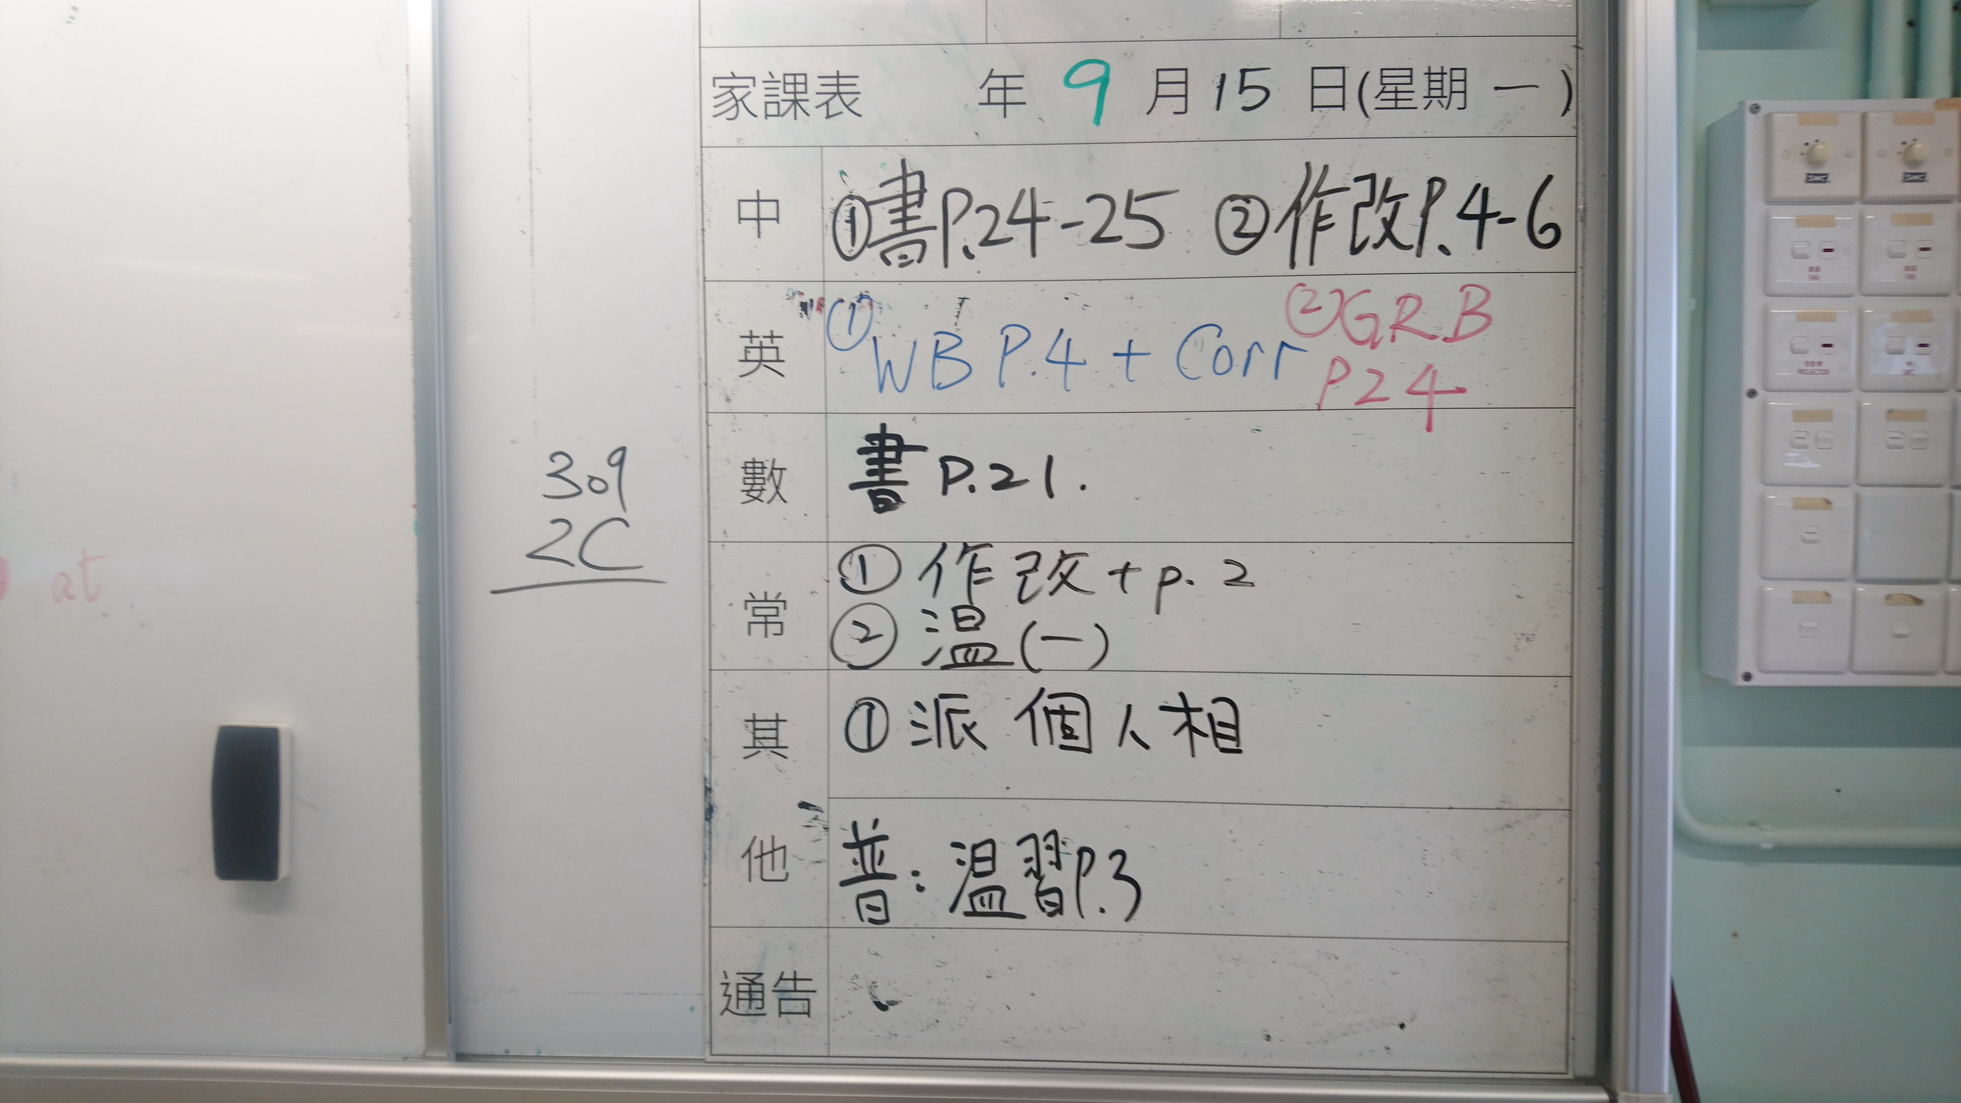 家課表 年 9 月 15 日(星期 一)
中 ①書P.24-25 ②作改P.4-6
英 ①WB P.4 + Corr ②GRB
P24
數 書 P.21.
常 ① 作改 + p. 2
② 温(一)
其他 ① 派個人相
普:温習P.3
通告
309
2C
at